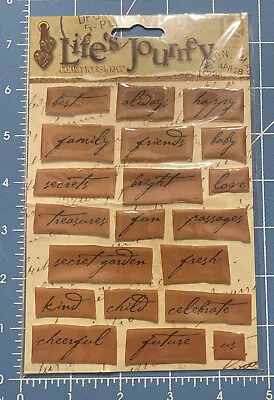 Life's Journey
CLEARLY YOURS by K&CO
best always happy
family friends baby
secrets bright love
treasures fun passages
secret garden fresh
kind child celebrate
cheerful future us
7
6
5
4
3
2
1
0 1 2 3 4 5